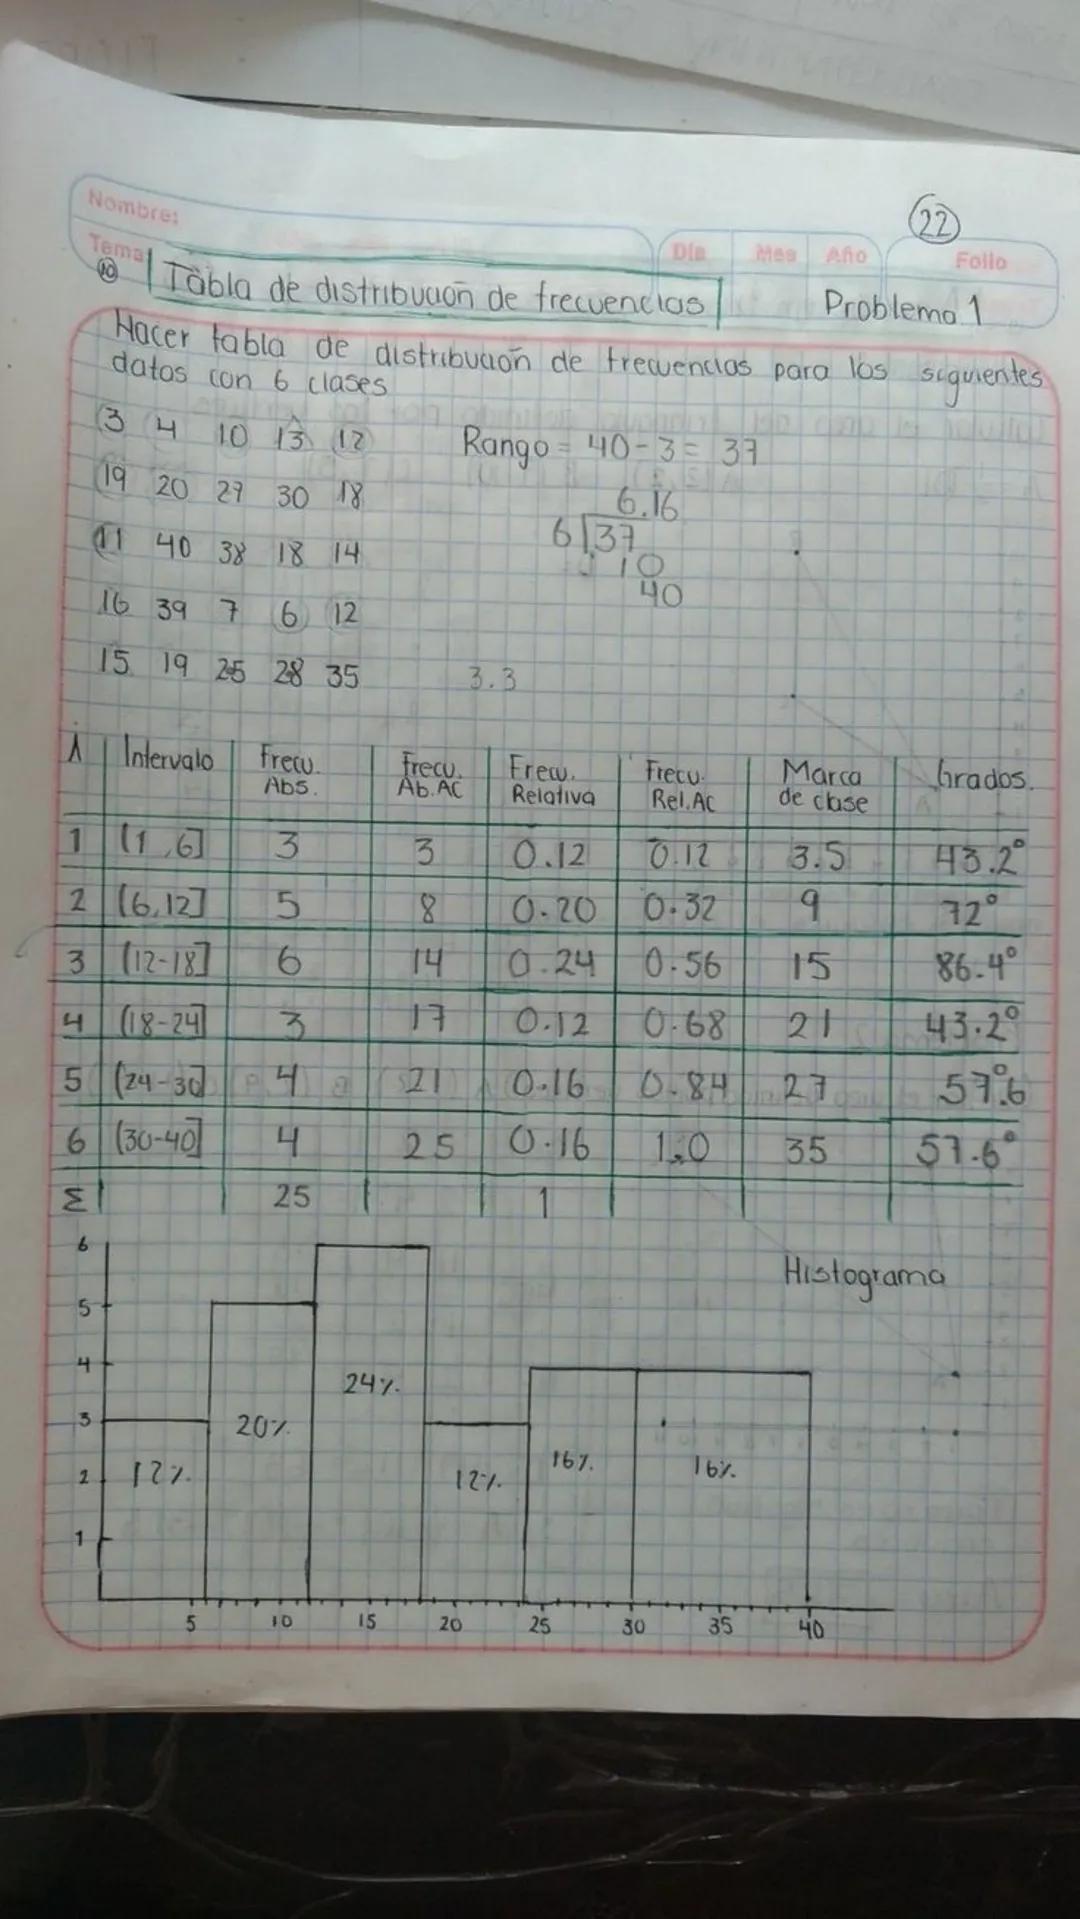 22
Nombre:
Día Mes Año Folio
Tema
10 Tabla de distribución de frecuencias Problema 1
Hacer tabla de distribución de frecuencias para los siguientes
datos con 6 clases
3 4 10 13 12 Rango = 40-3 = 37
19 20 27 30 18 6.16
11 40 38 18 14 6 37
10
40
16 39 7 6 12
15 19 25 28 35 3.3
Intervalo Frecu. Abs. Frecu. Ab. AC Frecu. Relativa Frecu. Rel. AC Marca de clase Grados.
1 (1,6] 3 3 0.12 0.12 3.5 43.2°
2 (6,12] 5 8 0.20 0.32 9 72°
3 (12-18] 6 14 0.24 0.56 15 86.4°
4 (18-24] 3 17 0.12 0.68 21 43.2°
5 (24-30] 4 21 0.16 0.84 27 57.6°
6 (30-40] 4 25 0.16 1.0 35 57.6°
Σ 25 1
Histograma
6
5
4
3
2
1
12% 20% 24% 12% 16% 16%
5 10 15 20 25 30 35 40